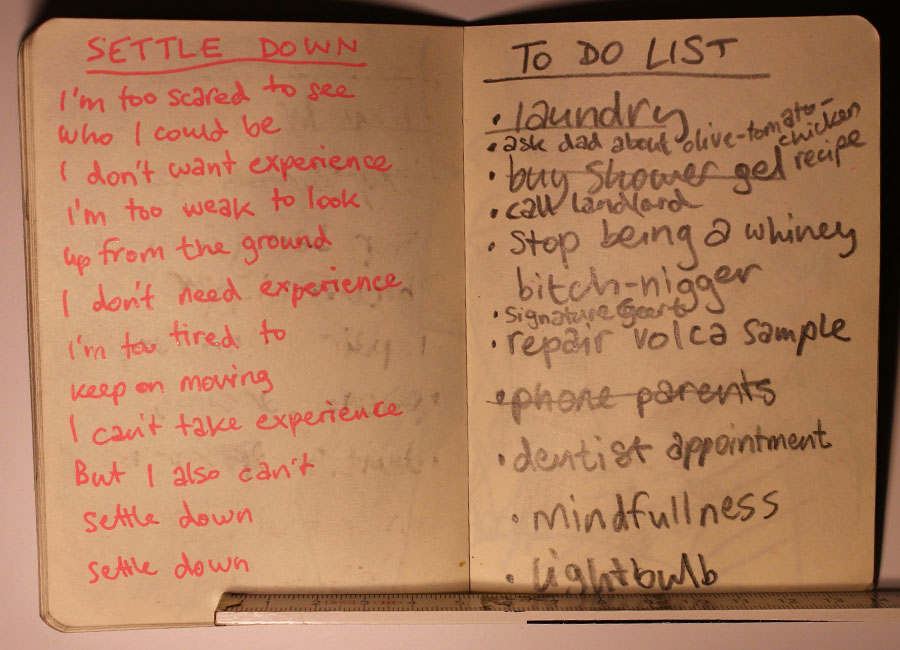 SETTLE DOWN
I'm too scared to see
who I could be
I don't want experience
I'm too weak to look
up from the ground
I don't need experience
I'm too tired to
keep on moving
I can't take experience
But I also can't
settle down
settle down
TO DO LIST
• laundry
• ask dad about olive-tomato-
chicken
recipe
• buy shower gel
• call landlord
• stop being a whiney
bitch-nigger
• signature Geert
• repair volca sample
• phone parents
• dentist appointment
• mindfullness
• lightbulb
1 2 3 4 5 6 7 8 9 10 11 12 13